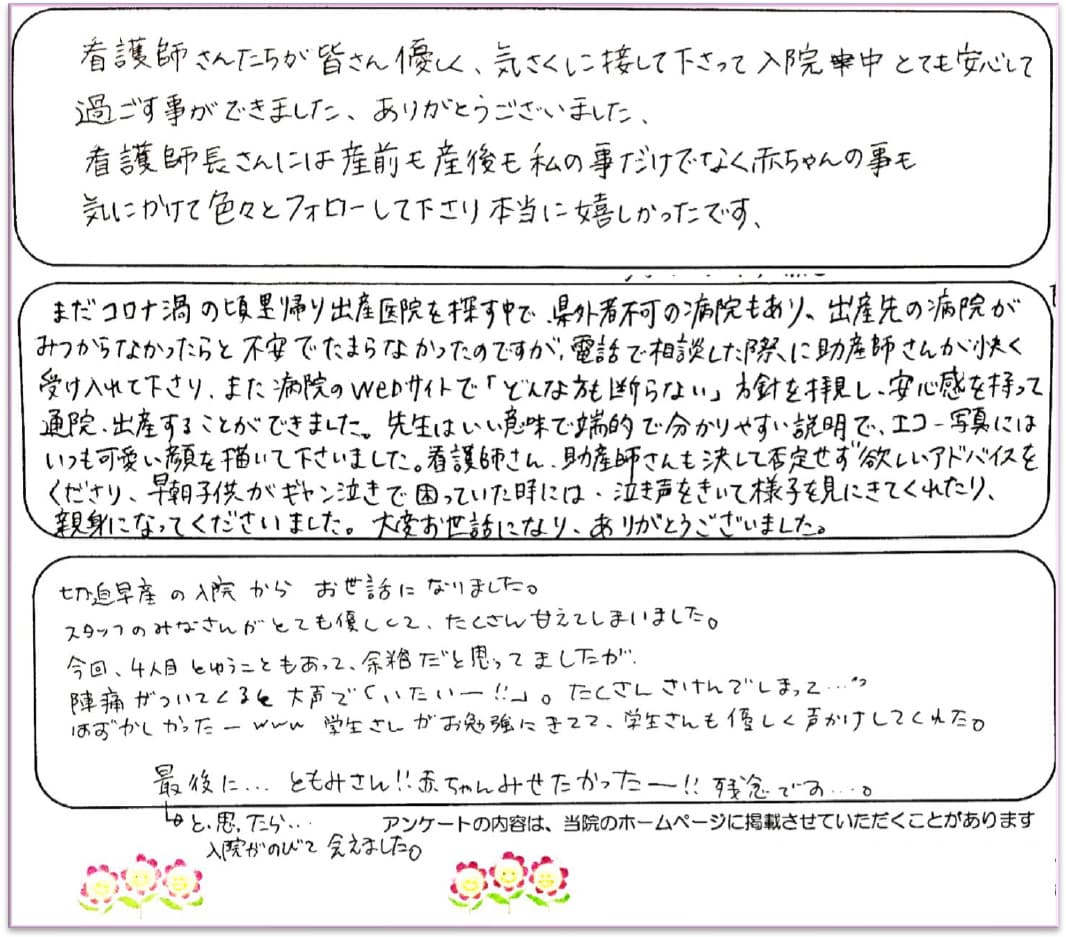 看護師さんたちが皆さん優しく、気さくに接して下さって入院中とても安心して
過ごす事ができました、ありがとうございました、
看護師長さんには産前も産後も私の事だけでなく赤ちゃんの事も
気にかけて色々とフォローして下さり本当に嬉しかったです、
まだコロナ渦の頃里帰り出産医院を探す中で、県外者不可の病院もあり、出産先の病院が
みつからなかったらと不安でたまらなかったのですが、電話で相談した際に助産師さんが快く
受け入れて下さり、また病院のWebサイトで「どんな方も断らない」方針を拝見し、安心感を持って
通院、出産することができました。先生はいい意味で端的で分かりやすい説明で、エコー写真には
いつも可愛い顔を描いて下さいました。看護師さん、助産師さんも決して否定せず欲しいアドバイスを
くださり、早朝子供がギャン泣きで困っていた時には、泣き声をきいて様子を見にきてくれたり、
親身になってくださいました。大変お世話になり、ありがとうございました。
切迫早産の入院から お世話になりました。
スタッフのみなさんがとても優しくて、たくさん甘えてしまいました。
今回、4人目とゆうこともあって、余裕だと思ってましたが、
陣痛がついてくると大声で「いたいー!!」。たくさんさけんでしまって…
はずかしかったーwww 学生さんがお勉強にきてて、学生さんも優しく声かけしてくれた。
最後に… ともみさん!!赤ちゃんみせたかったー!! 残念です…。
↳と、思ったら…
入院がのびて会えました。
アンケートの内容は、当院のホームページに掲載させていただくことがあります